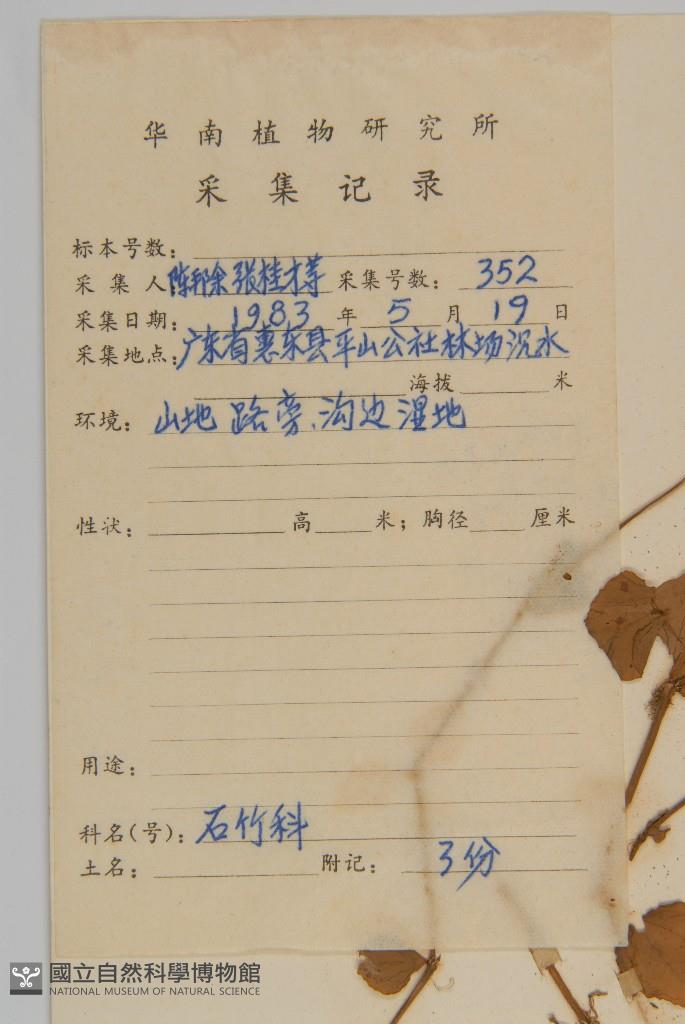 华南植物研究所
采集记录
标本号数：
采集人 陈邦余 张桂才等 采集号数： 352
采集日期： 1983 年 5 月 19 日
采集地点： 广东省惠东县平山公社林场沉水
海拔 米
环境： 山地路旁、沟边湿地
性状： 高 米；胸径 厘米
用途：
科名(号)： 石竹科
土名： 附记： 3份
國立自然科學博物館
NATIONAL MUSEUM OF NATURAL SCIENCE